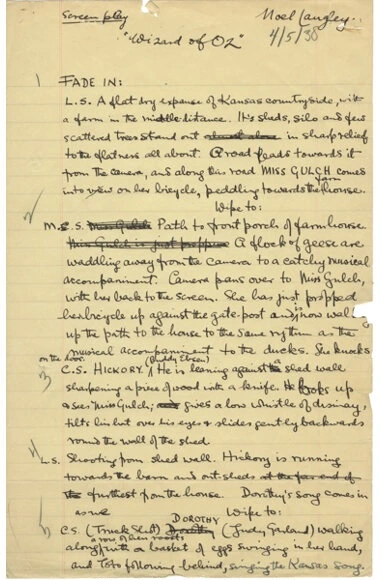 Screen play
Noel Langley.
4/5/38
"Wizard of OZ"
1 FADE IN:
L.S. A flat dry expense of Kansas countryside, with
a farm in the middle distance. It's sheds, silo and few
scattered trees stand out in sharp relief
to the flatness all about. A road leads towards it
from the camera, and along this road MISS GULCH comes
into view on her bicycle, peddling towards the farm house.
Wipe to:
M.C.S. Miss Gulch Path to front porch of farmhouse
Miss Gulch is just propped A flock of geese are
waddling away from the camera to a catchy musical
accompaniment. Camera pans over to Miss Gulch,
with her back to the screen. She has just propped
her bicycle up against the gate-post and is now walking
up the path to the house to the same rythm as the
musical accompaniment to the ducks. She knocks
on the door. (Buddy Ebsen)
C.S. HICKORY He is leaning against a shed wall
sharpening a piece of wood with a knife. He looks up
& sees Miss Gulch; and gives a low whistle of dismay,
tilts his hat over his eyes & slides gently backwards
round the wall of the shed.
L.S. Shooting from shed wall. Hickory is running
towards the barn and out-sheds at the far end of
the furthest from the house. Dorothy's song comes in
as we Wipe to:
C.S. (Truck Shot) Dorothy DOROTHY (Judy Garland) walking
along a row of hen roosts with a basket of eggs swinging in her hand,
and Toto following behind, singing the Kansas song.